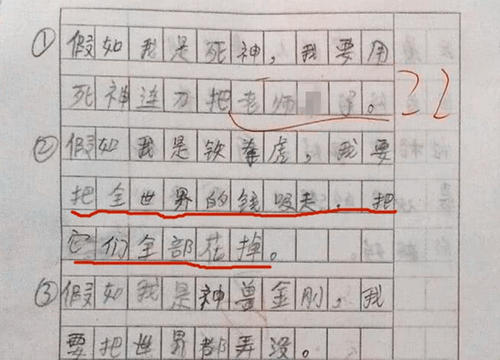 ①假如我是死神,我要用
死神连刀把老师了。
②假如我是铁拳虎,我要
把全世界的钱吸夫,把
它们全部花掉。
③假如我是神兽金刚,我
要把世界都弄没。